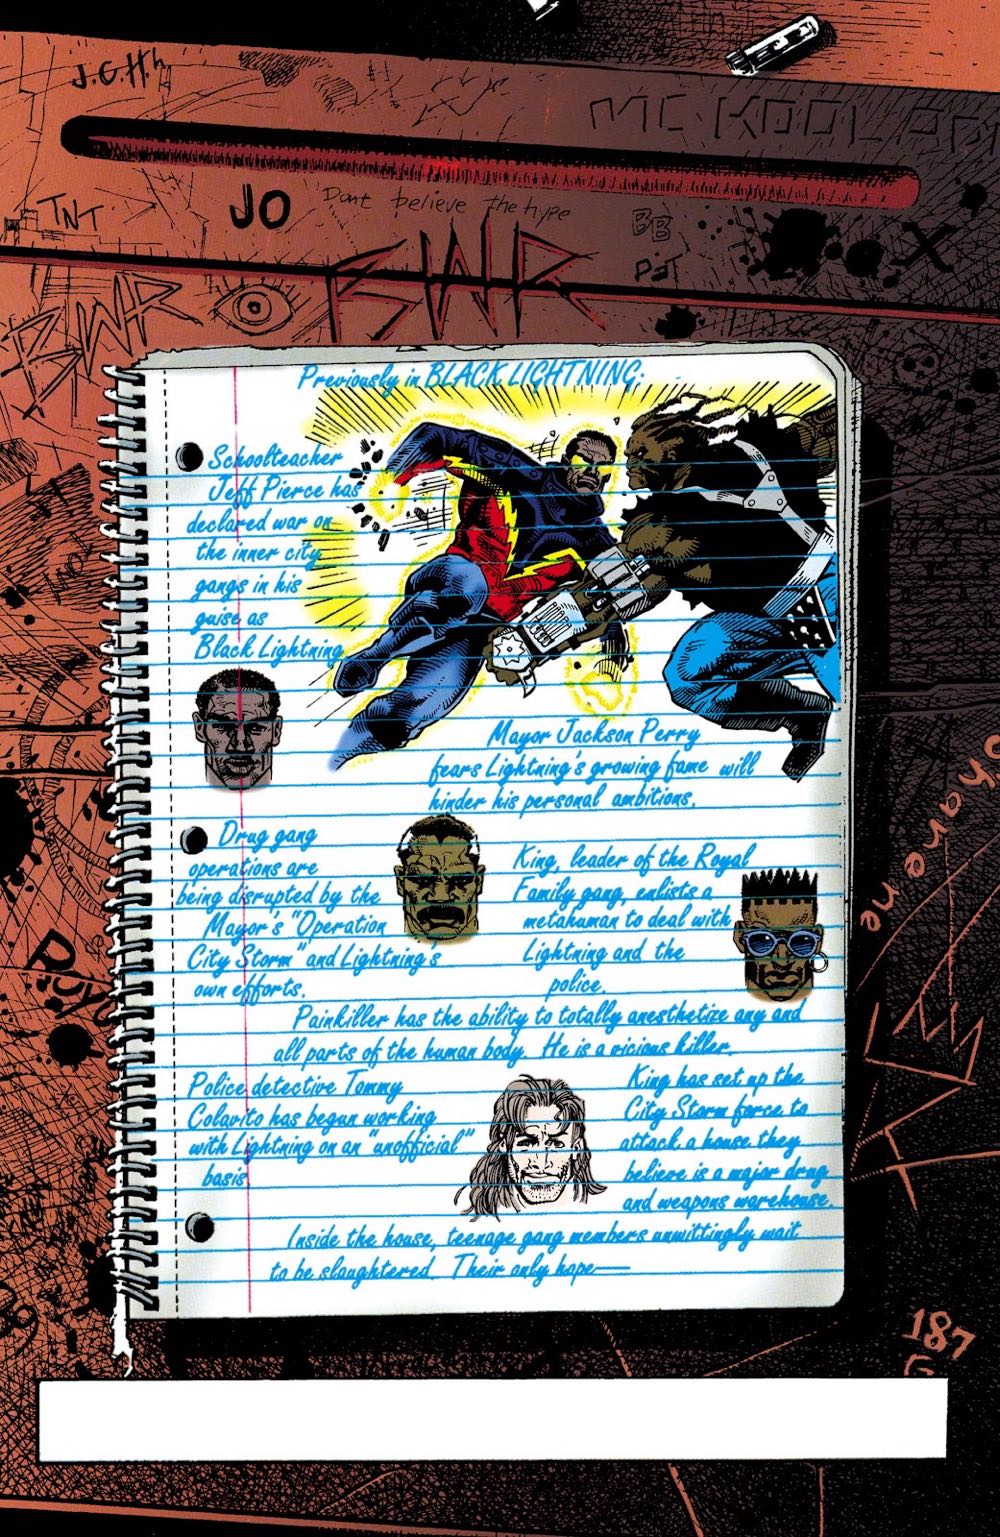 J.G.H.h
MC KOOL
TNT
JO
Dont believe the hype
BB
PiT
X
BWR
BWR
Previously in BLACK LIGHTNING:
Schoolteacher
Jeff Pierce has
declared war on
the inner city
gangs in his
guise as
Black Lightning
Mayor Jackson Perry
fears Lightning's growing fame will
hinder his personal ambitions.
Drug gang
operations are
being disrupted by the
Mayor's "Operation
City Storm" and Lightning's
own efforts.
King, leader of the Royal
Family gang, enlists a
metahuman to deal with
Lightning and the
police.
Painkiller has the ability to totally anesthetize any and
all parts of the human body. He is a vicious killer.
Police detective Tommy
Colavito has begun working
with Lightning on an "unofficial"
basis
King has set up the
City Storm force to
attack a house they
believe is a major drug
and weapons warehouse.
Inside the house, teenage gang members unwittingly wait
to be slaughtered. Their only hope—
Roy
187